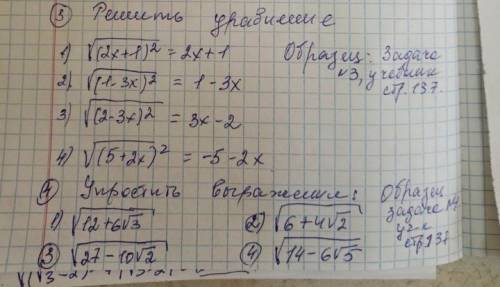 ③ Решить уравнение
1) √(2x+1)² = 2x+1
Образец: Задача
№3, учебник
стр. 137.
2) √(1-3x)² = 1-3x
3) √(2-3x)² = 3x-2
4) √(5+2x)² = -5-2x
④ Упростить выражение:
Образец
задача №4
уч-к
стр.137
1) √12+6√3
② √6+4√2
③ √27-10√2
④ √14-6√5